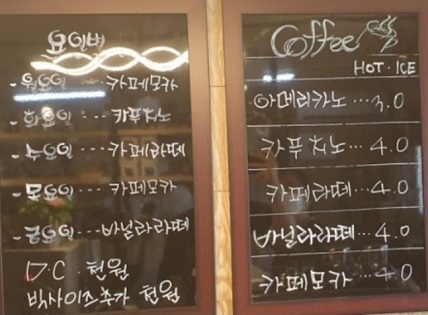 요일별
- 월요일 ··· 카페모카
- 화요일 ··· 카푸치노
- 수요일 ··· 카페라떼
- 목요일 ··· 카페모카
- 금요일 ··· 바닐라라떼
D.C 천원
빅사이즈추가 천원
Coffee
HOT · ICE
아메리카노 ··· 3.0
카푸치노 ··· 4.0
카페라떼 ··· 4.0
바닐라라떼 ··· 4.0
카페모카 ··· 4.0